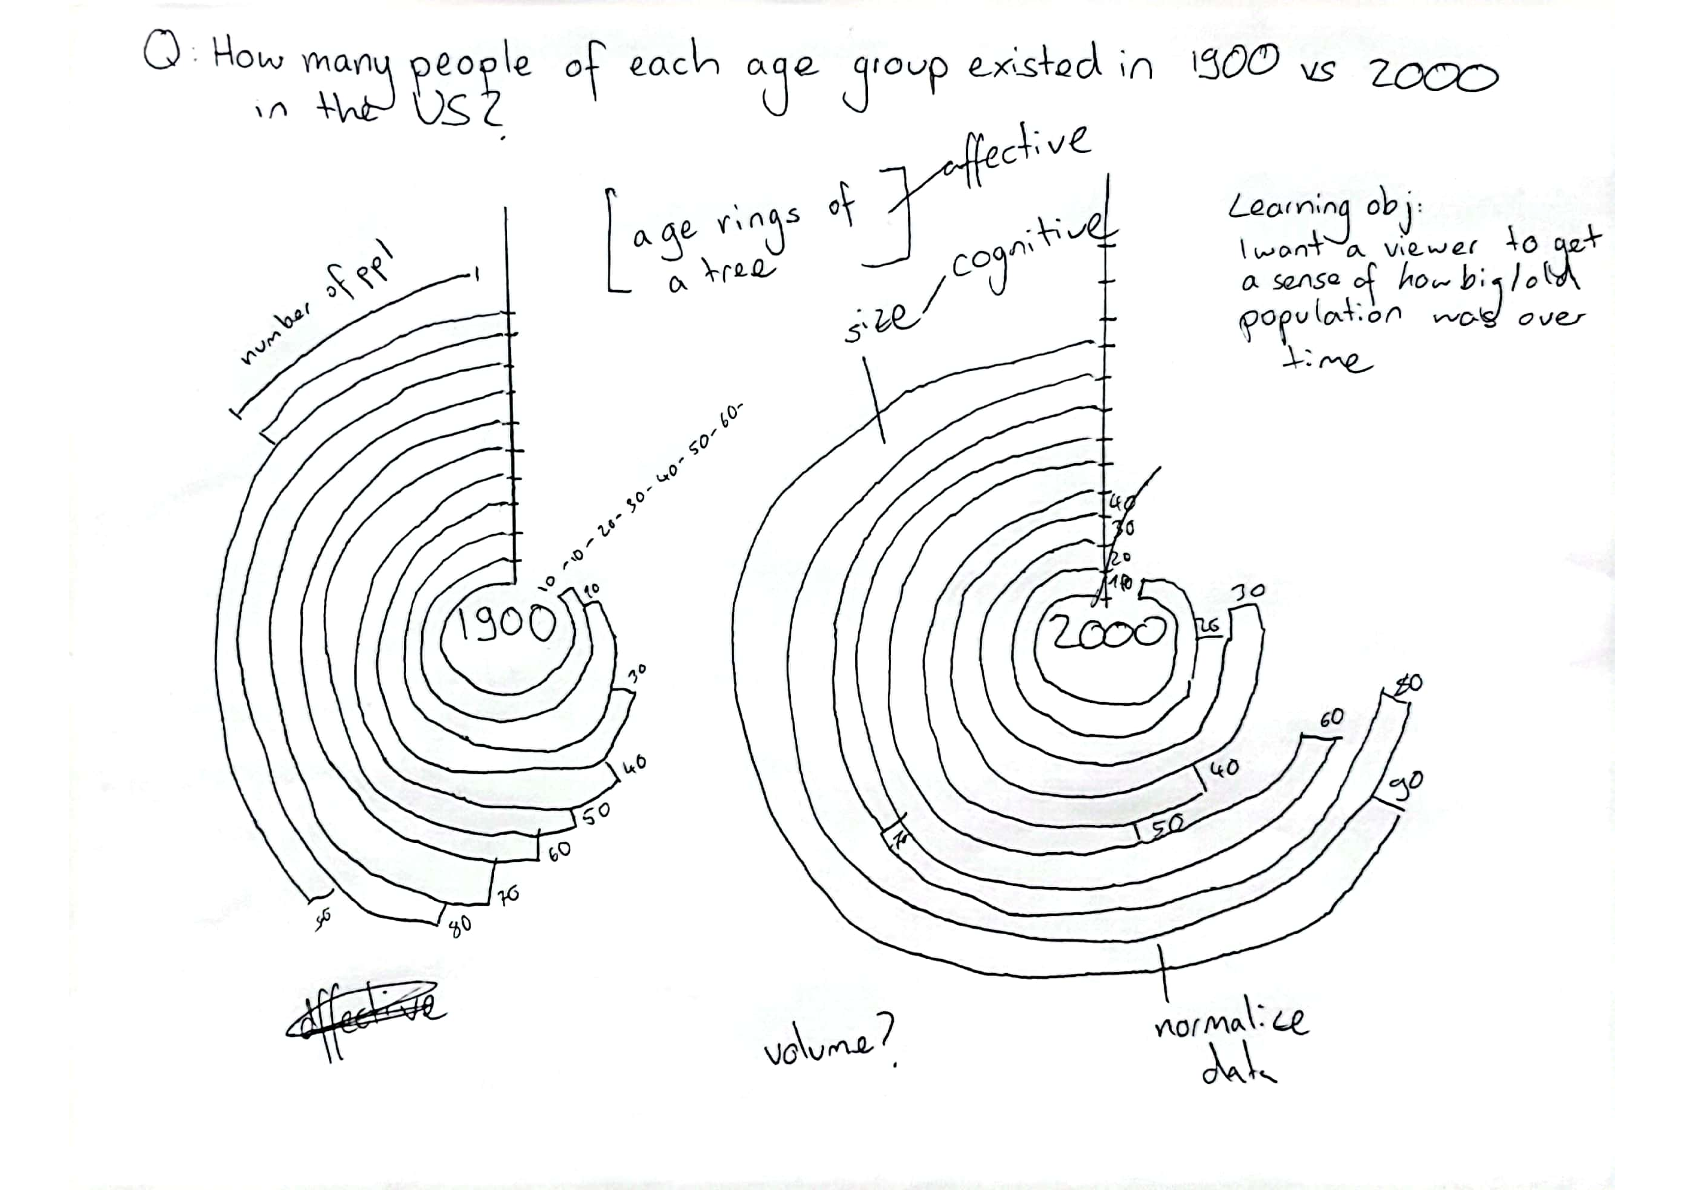 Q: How many people of each age group existed in 1900 vs 2000
in the US?
[age rings of
a tree]
affective
size
cognitive
Learning obj:
I want a viewer to get
a sense of how big/old
population was over
time
number of ppl
10-10-20-30-40-50-60-
1900
30
40
50
60
70
80
2000
40
30
20
10
30
40
50
60
80
90
volume?
normalice
data